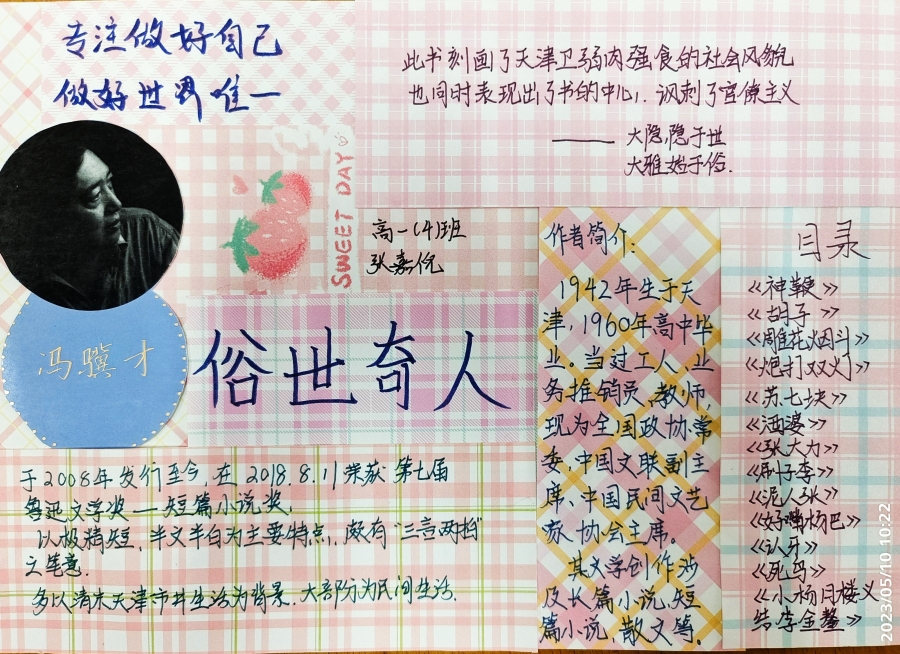 专注做好自己
做好世界唯一
此书刻画了天津卫弱肉强食的社会风貌
也同时表现出了书的中心,讽刺了官僚主义
——大隐,隐于世
大雅,始于俗.
SWEET DAY
高一(4)班
张嘉倪
冯骥才
俗世奇人
于2008年发行至今,在2018.8.11荣获第七届
鲁迅文学奖—短篇小说奖,
以极精短,半文半白为主要特点,颇有“三言两拍”
之笔意.
多以清末天津市井生活为背景.大部分为民间生活.
作者简介:
1942年生于天
津,1960年高中毕
业。当过工人、业
务推销员、教师,
现为全国政协常
委,中国文联副主
席、中国民间文艺
家协会主席。
其文学创作涉
及长篇小说、短
篇小说,散文等.
目录
《神鞭》
《胡子》
《雕花烟斗》
《炮打双灯》
《苏七块》
《酒婆》
《张大力》
《刷子李》
《泥人张》
《好嘴杨巴》
《认牙》
《死鸟》
《小杨月楼义
结李金鳌》
2023/05/10 10:22